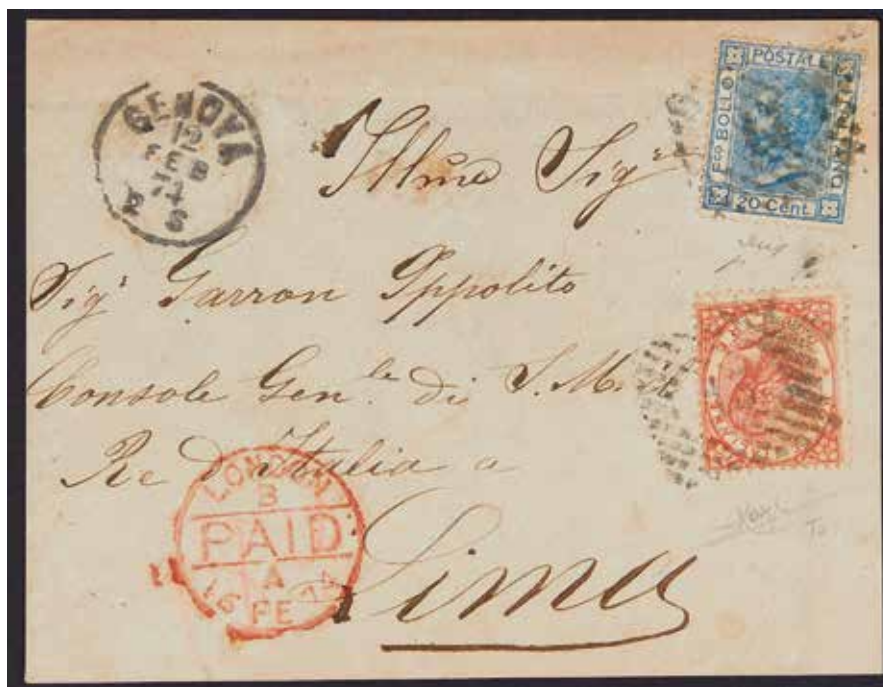 GENOVA
12
FEB
74
6
POSTALE
Fco BOLLO
ITALIANO
20 Cent.
Illmo Sigr
Sigr Garrou Ippolito
Console Genle di S. M. il
Re d'Italia a
Lima
LONDON
B
PAID
A
16 FE 74